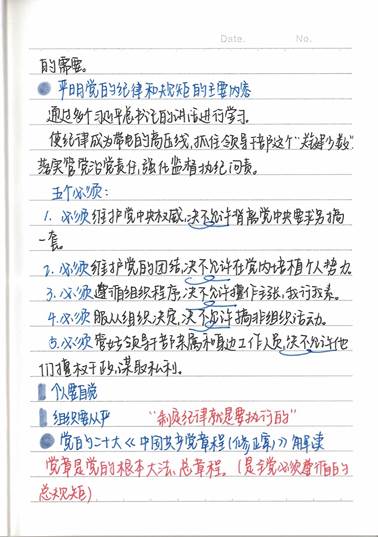 Date.　　No.
的需要。
严明党的纪律和规矩的主要内容
通过多个习近平总书记的讲话进行学习。
使纪律成为带电的高压线,抓住领导干部这个"关键少数"
落实管党治党责任,强化监督执纪问责。
五个必须:
1. 必须维护党中央权威,决不允许背离党中央要求另搞
一套。
2. 必须维护党的团结,决不允许在党内培植个人势力。
3. 必须遵循组织程序,决不允许擅作主张,我行我素。
4. 必须服从组织决定,决不允许搞非组织活动。
5. 必须管好领导干部亲属和身边工作人员,决不允许他
们擅权干政,谋取私利。
个人要自觉
组织要从严 "制度纪律就是要执行的"
党的二十大《中国共产党章程(修正案)》解读
党章是党的根本大法、总章程。(是全党必须遵循的
总规矩)